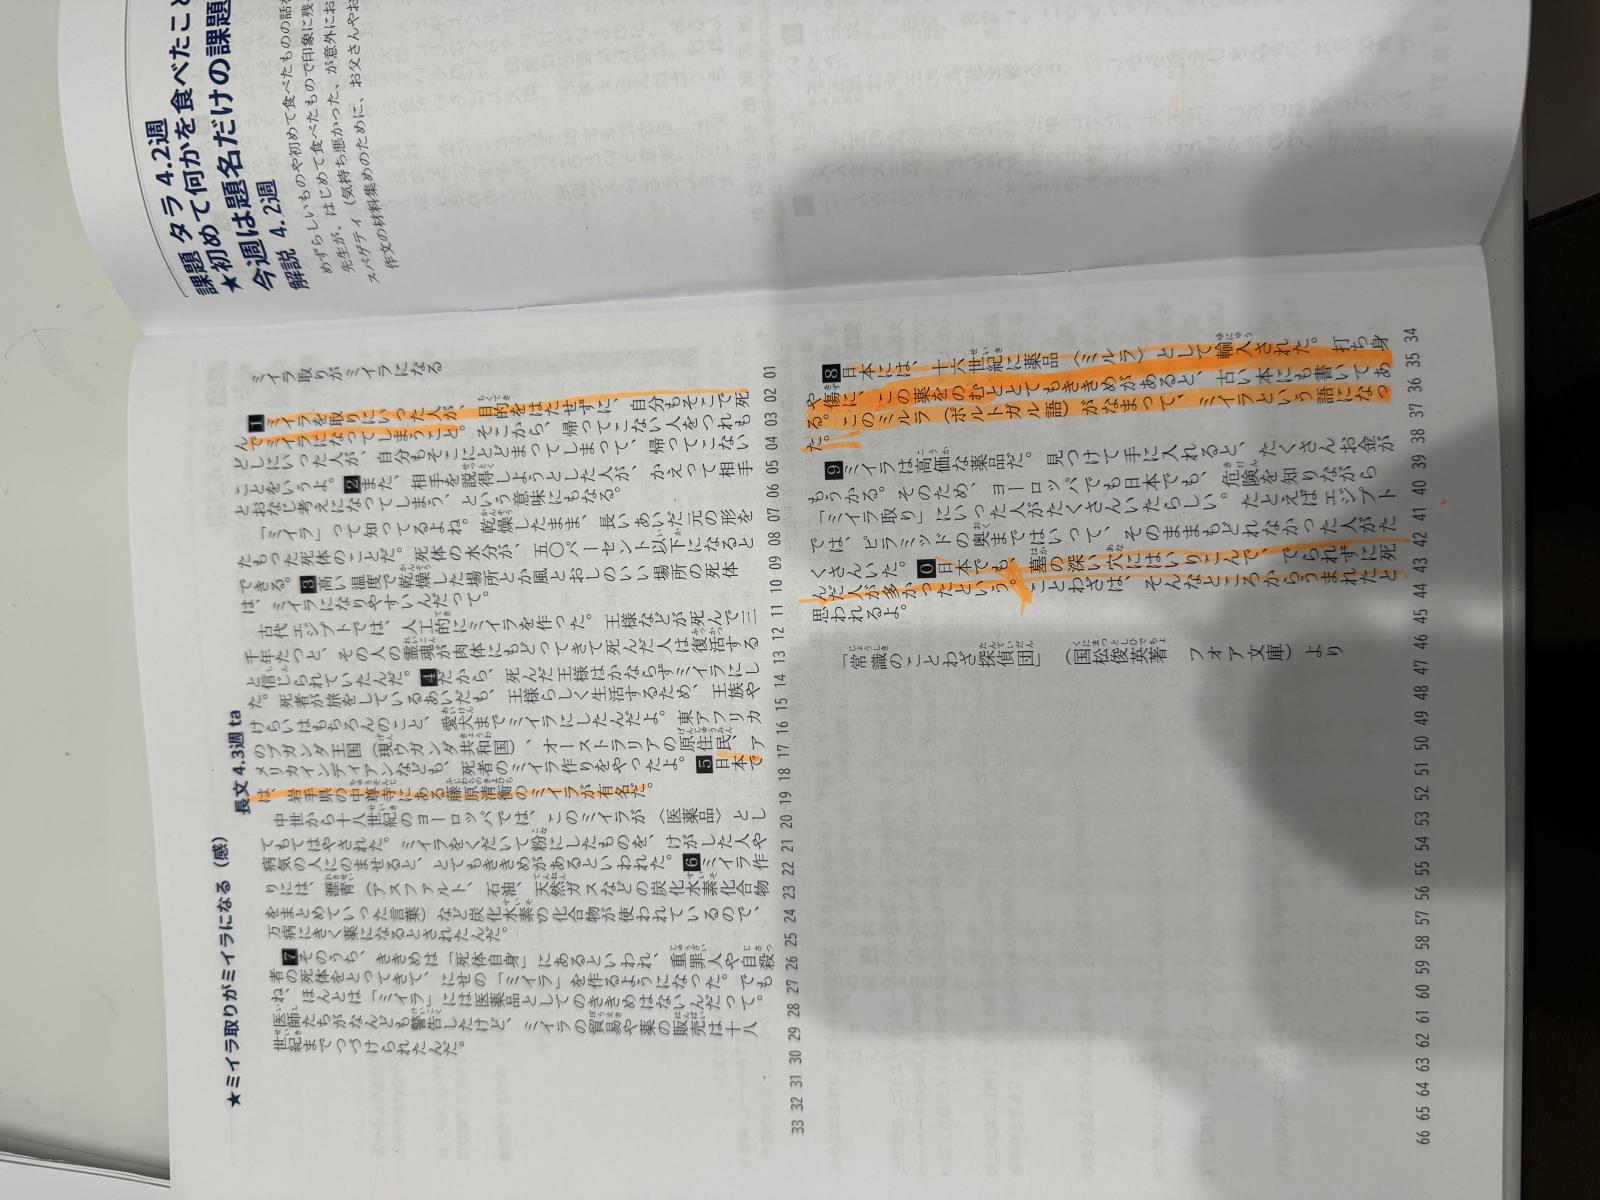 課題 タラ 4.2週
★初めて何かを食べたこと
今週は題名だけの課題
解説 4.2週
めずらしいものや初めて食べたものの話
先生が、はじめて食べたもので印象に残
スパゲティ(気持ち悪かった、が意外にお
作文の材料集めのために、お父さんやお
★ミイラ取りがミイラになる(感) 長文 4.3週 ta
ミイラ取りがミイラになる
1ミイラを取りにいった人が、目的をはたせずに、自分もそこで死
んでミイラになってしまうこと。そこから、帰ってこない人をつれも
どしにいった人が、自分もそこにとどまってしまって、帰ってこない
ことをいうよ。2また、相手を説得しようとした人が、かえって相手
とおなじ考えになってしまう、という意味にもなる。
「ミイラ」って知ってるよね。乾燥したまま、長いあいだ元の形を
たもった死体のことだ。死体の水分が、五〇パーセント以下になると
できる。3高い温度で乾燥した場所とか風とおしのいい場所の死体
は、ミイラになりやすいんだって。
古代エジプトでは、人工的にミイラを作った。王様などが死んで三
千年たつと、その人の霊魂が肉体にもどってきて死んだ人は復活する
と信じられていたんだ。4だから、死んだ王様はかならずミイラにし
た。死者が旅をしているあいだも、王様らしく生活するため、王族や
けらいはもちろんのこと、愛犬までミイラにしたんだよ。東アフリカ
のブガンダ王国(現ウガンダ共和国)、オーストラリアの原住民、ア
メリカインディアンなども、死者のミイラ作りをやったよ。5日本で
は、岩手県の中尊寺にある藤原清衡のミイラが有名だ。
中世から十八世紀のヨーロッパでは、このミイラが〈医薬品〉とし
てもてはやされた。ミイラをくだいて粉にしたものを、けがした人や
病気の人にのませると、とてもききめがあるといわれた。6ミイラ作
りには、瀝青(アスファルト、石油、天然ガスなどの炭化水素化合物
をまとめていった言葉)など炭化水素の化合物が使われているので、
万病にきく薬になるとされたんだ。
7そのうち、ききめは「死体自身」にあるといわれ、重罪人や自殺
者の死体をとってきて、にせの「ミイラ」を作るようになった。でも
ね、ほんとは「ミイラ」には医薬品としてのききめはないんだって。
医師たちがなんども警告したけど、ミイラの貿易や薬の販売は十八
世紀までつづけられたんだ。
01 02 03 04 05 06 07 08 09 10 11 12 13 14 15 16 17 18 19 20 21 22 23 24 25 26 27 28 29 30 31 32 33
8日本には、十六世紀に薬品〈ミルラ〉として輸入された。打ち身
や傷に、この薬をのむととてもききめがあると、古い本にも書いてあ
る。このミルラ(ポルトガル語)がなまって、ミイラという語になっ
た。
9ミイラは高価な薬品だ。見つけて手に入れると、たくさんお金が
もうかる。そのため、ヨーロッパでも日本でも、危険を知りながら
「ミイラ取り」にいった人がたくさんいたらしい。たとえばエジプト
では、ピラミッドの奥まではいって、そのままもどれなかった人がた
くさんいた。0日本でも、墓の深い穴にはいりこんで、でられずに死
んだ人が多かったという。ことわざは、そんなところからうまれたと
思われるよ。
「常識のことわざ探偵団」(国松俊英著 フォア文庫)より
34 35 36 37 38 39 40 41 42 43 44 45 46 47 48 49 50 51 52 53 54 55 56 57 58 59 60 61 62 63 64 65 66